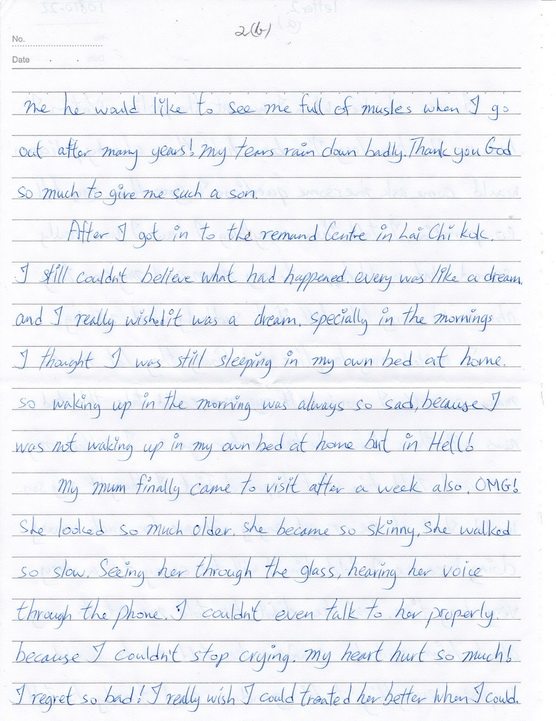 2(b)
No.
Date
me he would like to see me full of musles when I go
out after many years! my tears rain down badly. Thank you God
so much to give me such a son.
After I got in to the remand Centre in Lai Chi kok.
I still couldn't believe what had happened. every was like a dream
and I really wished it was a dream. specially in the mornings
I thought I was still sleeping in my own bed at home.
so! waking up in the morning was always so sad, because I
was not waking up in my own bed at home but in Hell!
My mum finally came to visit after a week also. OMG!
She looked so much older. she became so skinny, she walked
so slow. Seeing her through the glass, hearing her voice
through the phone. I couldn't even talk to her properly.
because I couldn't stop crying. my heart hurt so much!
I regret so bad! I really wish I could treated her better when I could.